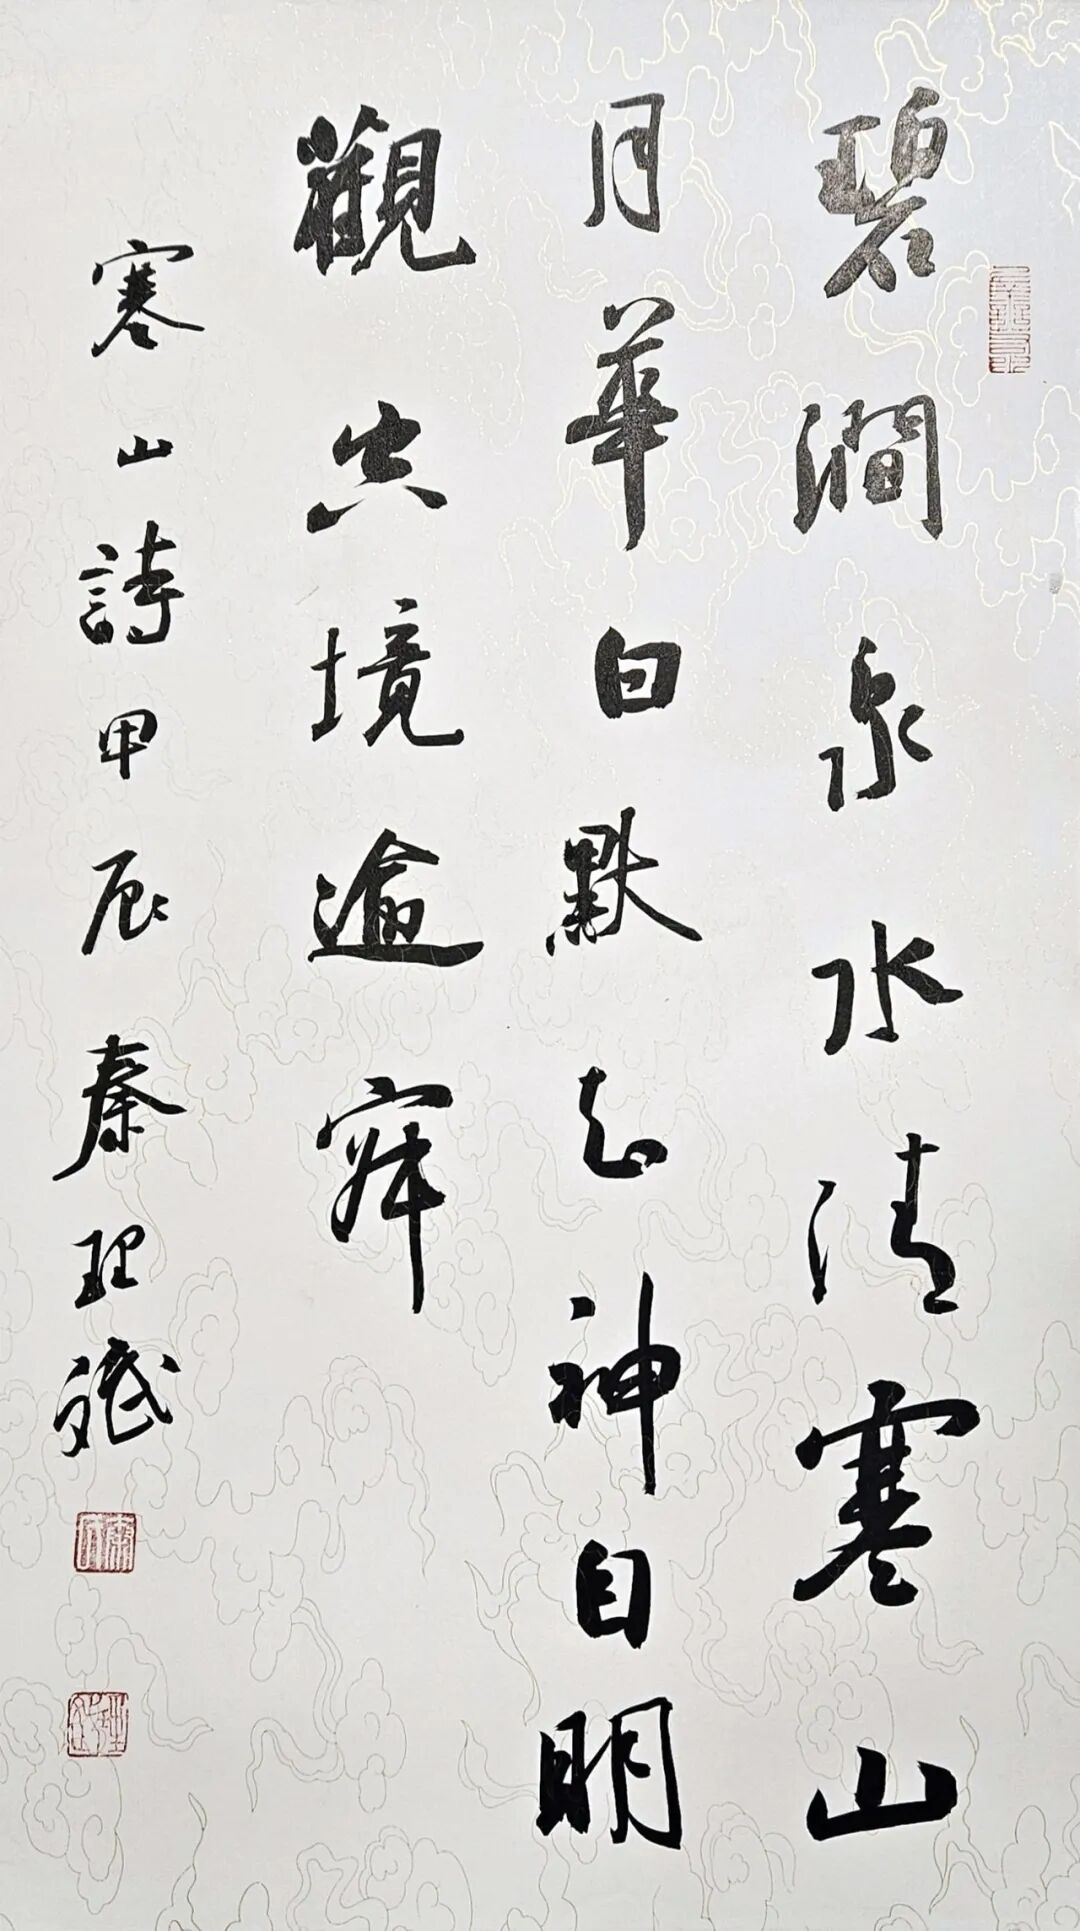 碧澗泉水清寒山
月華白默知神自明
觀空境逾寂
寒山詩甲辰秦理